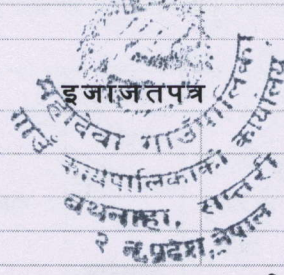 इजाजतपत्र
महादेवा गाउँपालिका
गाउँ कार्यपालिकाको कार्यालय
बथनाहा, सप्तरी
२ नं. प्रदेश, नेपाल